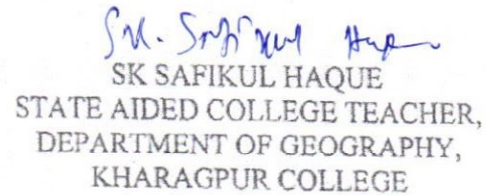 Sk. Safikul Haque
SK SAFIKUL HAQUE
STATE AIDED COLLEGE TEACHER,
DEPARTMENT OF GEOGRAPHY,
KHARAGPUR COLLEGE